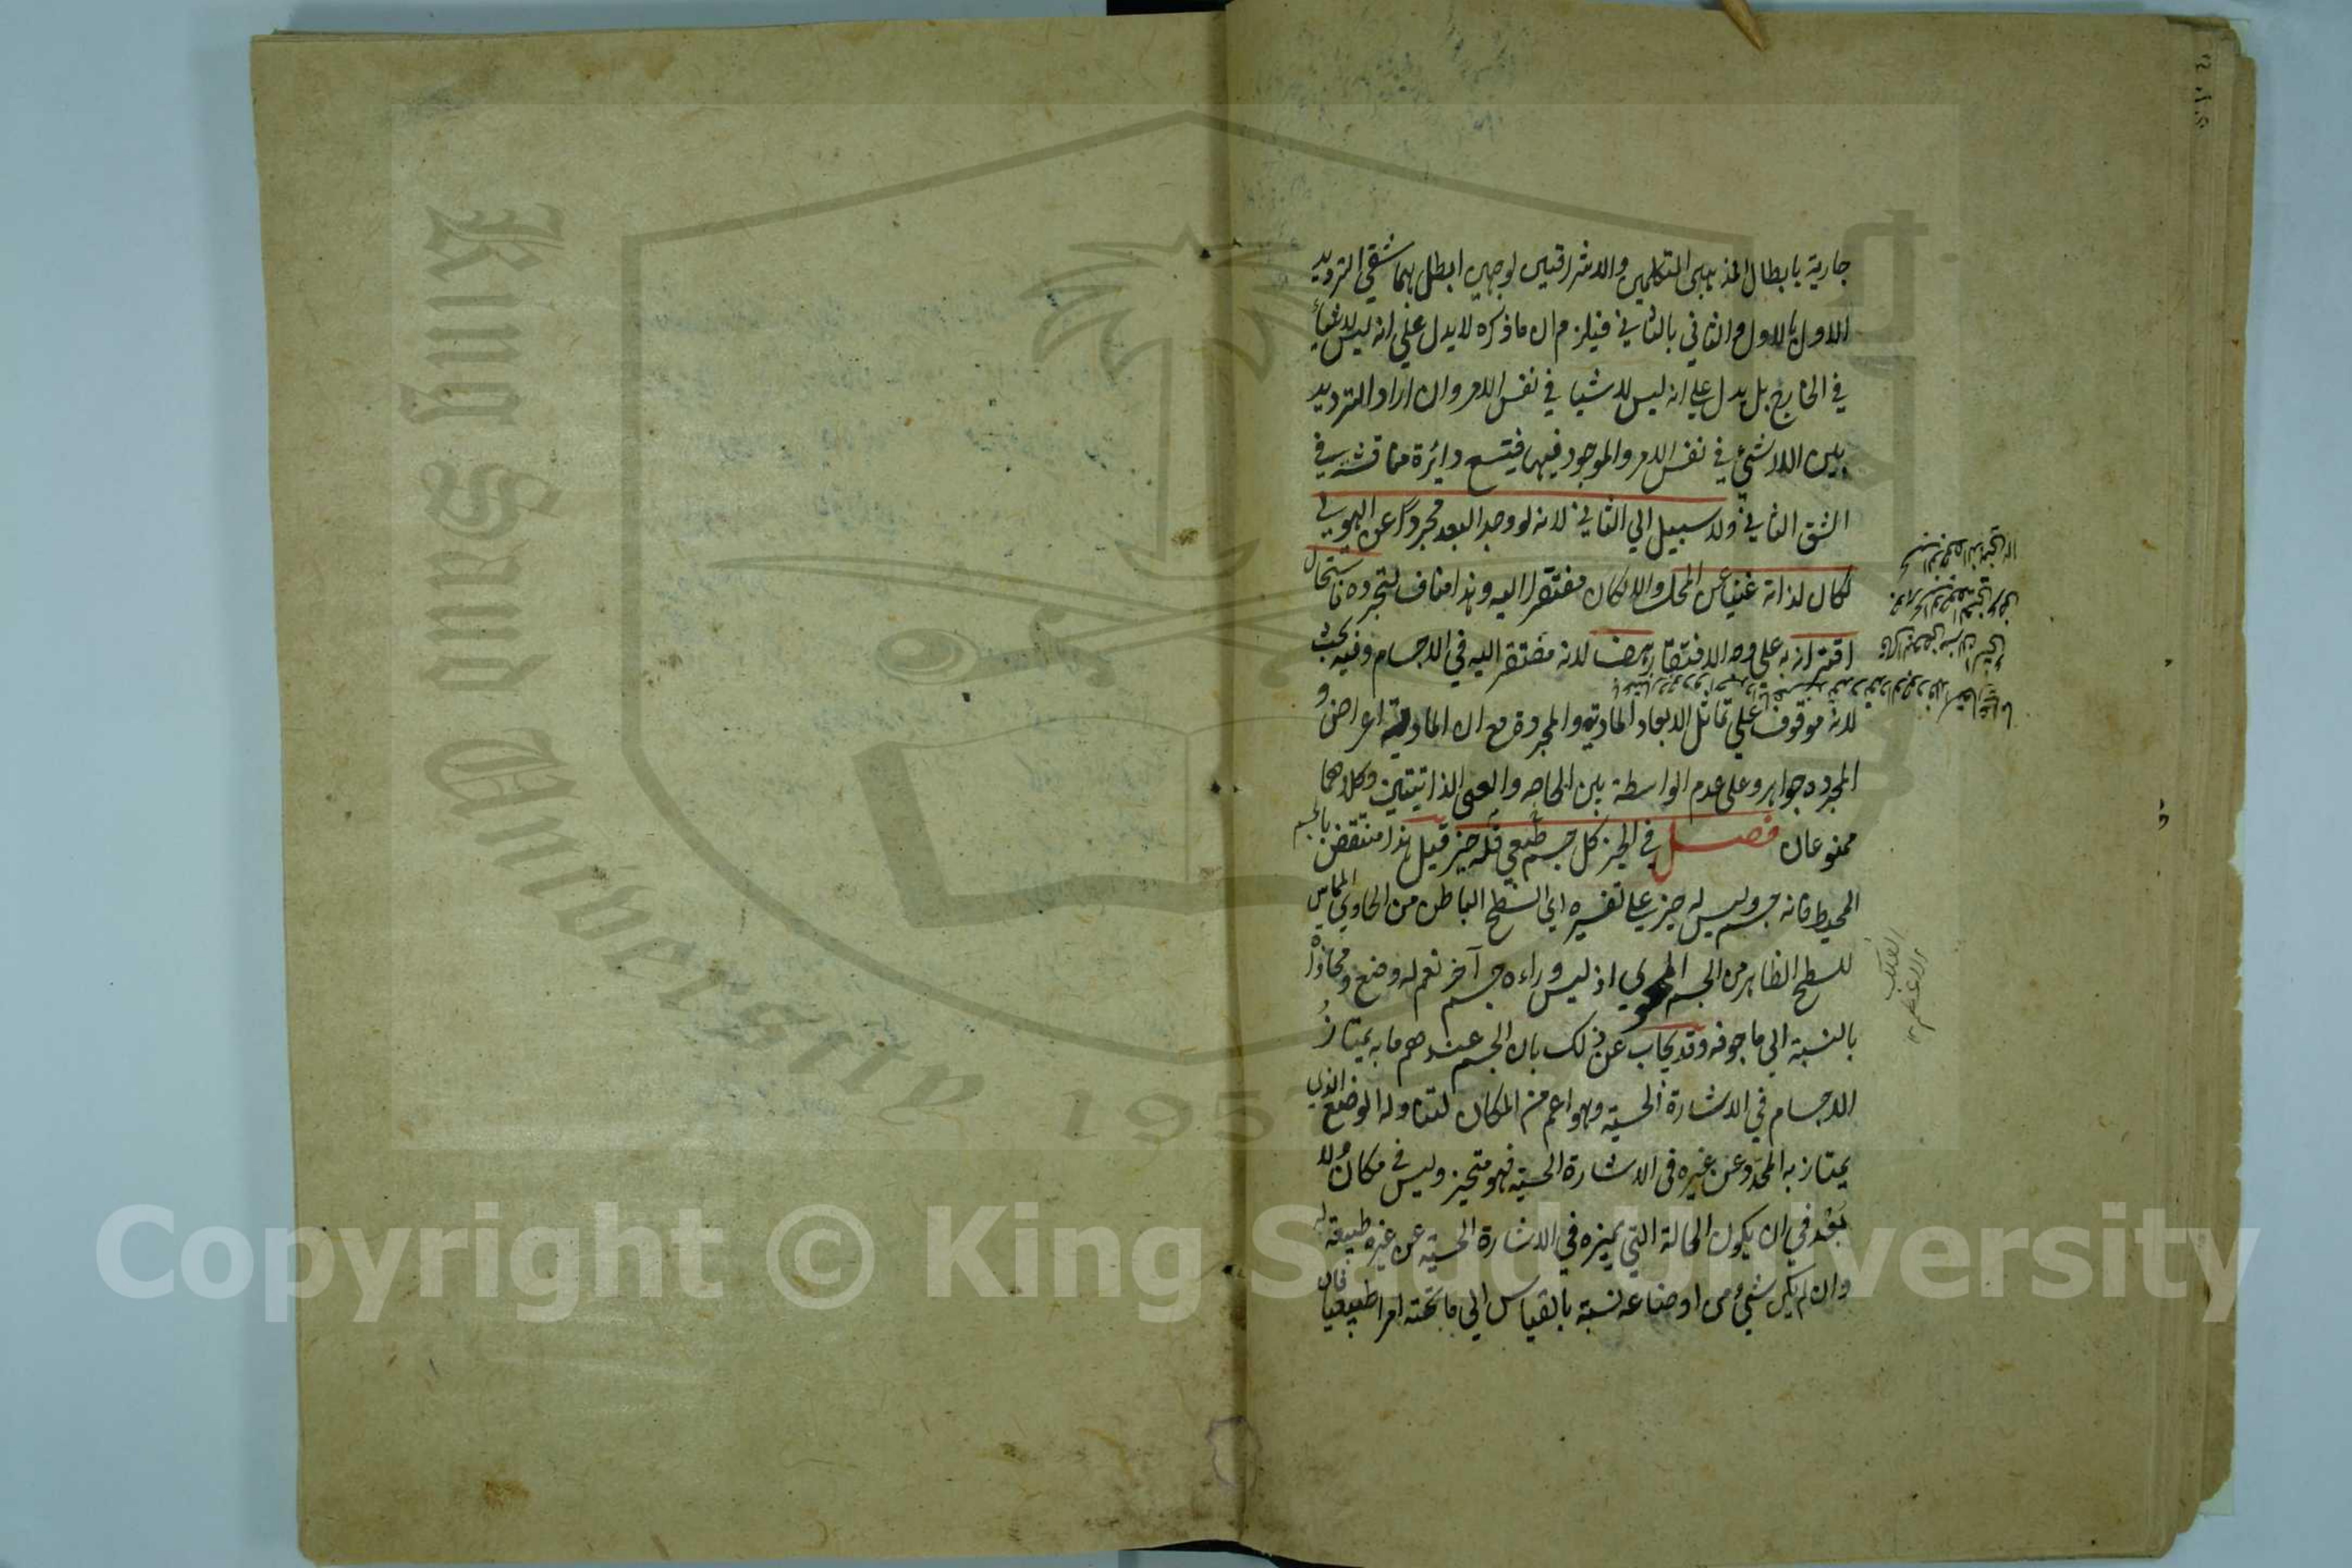 جارية بابطال المذهبى المتكلمين والاشراقيين لوجهين ابطل بهما شقي الترديد
الاول بالاول والثاني بالثاني فيلزم ان ما ذكره لا يدل علي انه ليس لاشيأ
في الخارج بل يدل علي انه ليس لاشيا في نفس الامر وان اراد الترديد
بين اللاشئ في نفس الامر والموجود فيها فيتسع دائرة مناقشة في
الشق الثاني ولا سبيل الي الثاني لانه لو وجد البعد مجردا عن الهيولي
لكان لذاته غنيا عن المحل والا لكان مفتقرا اليه وهذا مناف لتجرده فاستحال
اقترانه به علي وجه الافتقار هف لانه مفتقر اليه في الاجسام وفيه بحث
لانه موقوف علي تماثل الابعاد المادية والمجردة مع ان المادية اعراض و
المجرده جواهر وعلي عدم الواسطة بين الحاجه والغني الذاتيتين وكلاهما
ممنوعان فصل في الحيز كل جسم طبعي فله حيز قيل هذا منتقض بالجسم
المحيط فانه جسم وليس له حيز علي تفسيره اي السطح الباطن من الحاوي المماس
للسطح الظاهر من الجسم المحوي اذ ليس وراءه جسم آخر نعم له وضع ومحاذاة
بالنسبة الي ما جوفه وقد يجاب عن ذلك بان الجسم عندهم ما به يمتاز
الاجسام في الاشارة الحسية وهو اعم من المكان لتناوله الوضع الذي
يمتاز به المحدد عن غيره في الاشارة الحسية فهو متحيز وليس في مكان ولا
بعد في ان يكون الحالة التي تميزه في الاشارة الحسية عن غيره طبيعة له
وان لم يكن شئ من اوضاعه نسبة بالقياس الي ما تحته امرا طبيعيا فان
الفلك
الاعظم ١٢
King Saud University
1957
Copyright © King Saud University